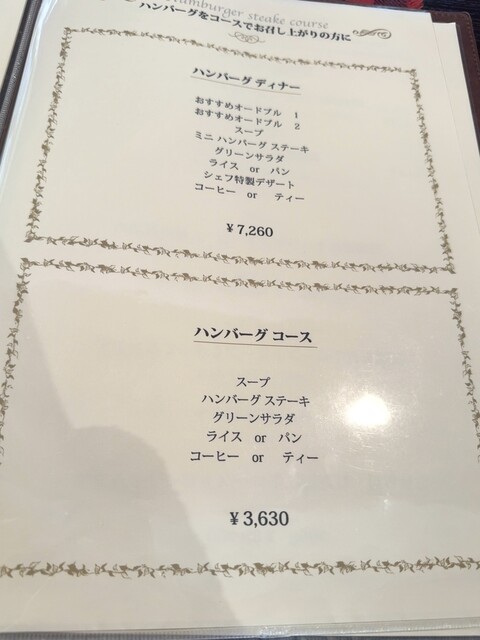 Hamburger steake course
ハンバーグをコースでお召し上がりの方に
ハンバーグ ディナー
おすすめオードブル 1
おすすめオードブル 2
スープ
ミニ ハンバーグ ステーキ
グリーンサラダ
ライス or パン
シェフ特製デザート
コーヒー or ティー
¥7,260
ハンバーグ コース
スープ
ハンバーグ ステーキ
グリーンサラダ
ライス or パン
コーヒー or ティー
¥3,630